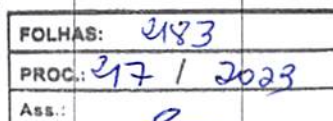 FOLHAS: 2183
PROC.: 217 / 2023
Ass.: